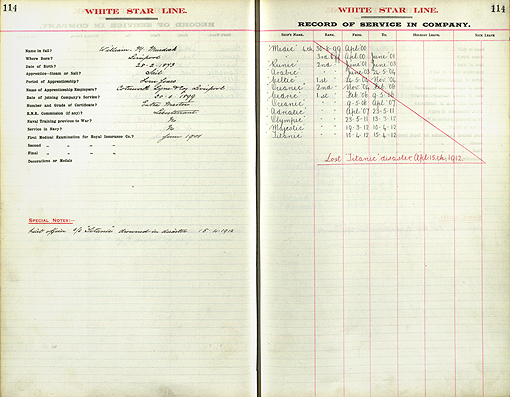 114
WHITE STAR LINE.
Name in full? William M. Murdoch
Where Born?
Date of Birth? 28-2-1873
Apprentice—Steam or Sail? Sail
Period of Apprenticeship? Four Years
Name of Apprenticeship Employers? & Coy Liverpool
Date of joining Company's Service? 1899
Number and Grade of Certificate? Extra Master
R.N.R. Commission (if any)? Lieutenant
Naval Training previous to War? No
Service in Navy? No
First Medical Examination for Royal Insurance Co.? June 1900
Second „ „ „ „
Final „ „ „ „
Decorations or Medals
SPECIAL NOTES:—
Chief officer S/S "Titanic" drowned in disaster 15-4-1912
WHITE STAR LINE.
114
RECORD OF SERVICE IN COMPANY.
SHIP'S NAME. RANK. FROM. TO. HOLIDAY LEAVE. SICK LEAVE
"Medic" 4th 30-8-99 Apl. 00
" 3rd Apl. 00 June 01
"Runic" 2nd June 01 June 03
Arabic " June 03 26-5-04
Celtic 1st 26-5-04 Nov. 04
Oceanic 2nd Nov. 04
Cedric 1st Feb 06 9-5-06
Oceanic " 9-5-06 Apl. 07
Adriatic " Apl. 07 23-5-11
Olympic " 23-5-11 13-3-12
Majestic " 19-3-12 10-4-12
Titanic " 10-4-12 15-4-12
Lost "Titanic" disaster Apl. 15th, 1912.